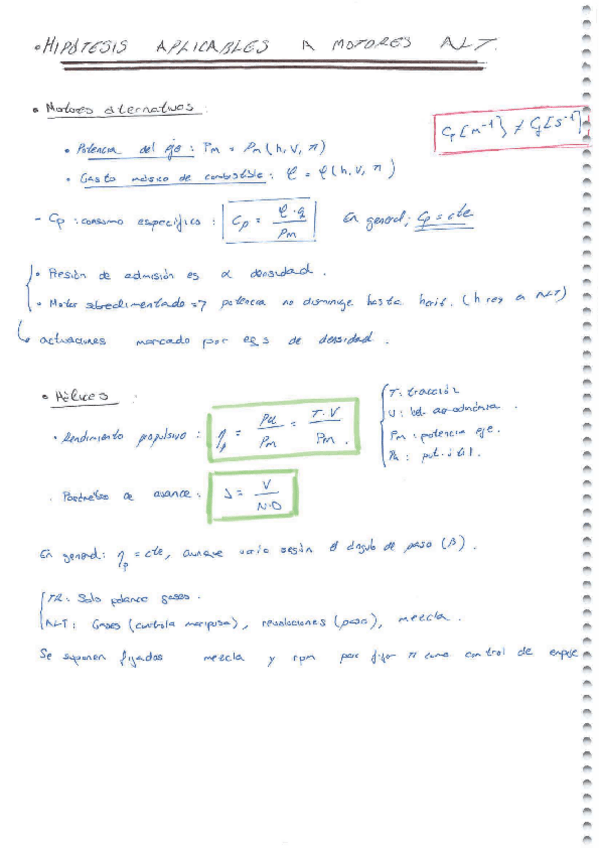 • HIPÓTESIS APLICABLES A MOTORES ALT.
• Motores alternativos :
Cp [m⁻¹] ≠ Cj [s⁻¹]
• Potencia del eje : Pm = Pm (h, V, π)
• Gasto másico de combustible : φ = φ (h, V, π)
- Cp : consumo específico : Cp = φ·g / Pm En general; Cp = cte
• Presión de admisión es α densidad .
• Motor sobrealimentado => potencia no disminuye hasta hcrit. ( h rest a ALT)
↳ actuaciones marcado por eqs de densidad .
• Hélices :
• Rendimiento propulsivo : ηp = Pu / Pm = T·V / Pm .
T : tracción
V : vel. aerodinámica .
Pm : potencia eje .
Pu : pot. útil .
. Parámetro de avance : J = V / N·D
En general : ηp = cte , aunque varía según el ángulo de paso (β) .
TR : Solo palanca gases .
ALT : Gases (controla mariposa) , revoluciones (paso) , mezcla .
Se suponen fijadas mezcla y rpm para fijar π como control de empuje